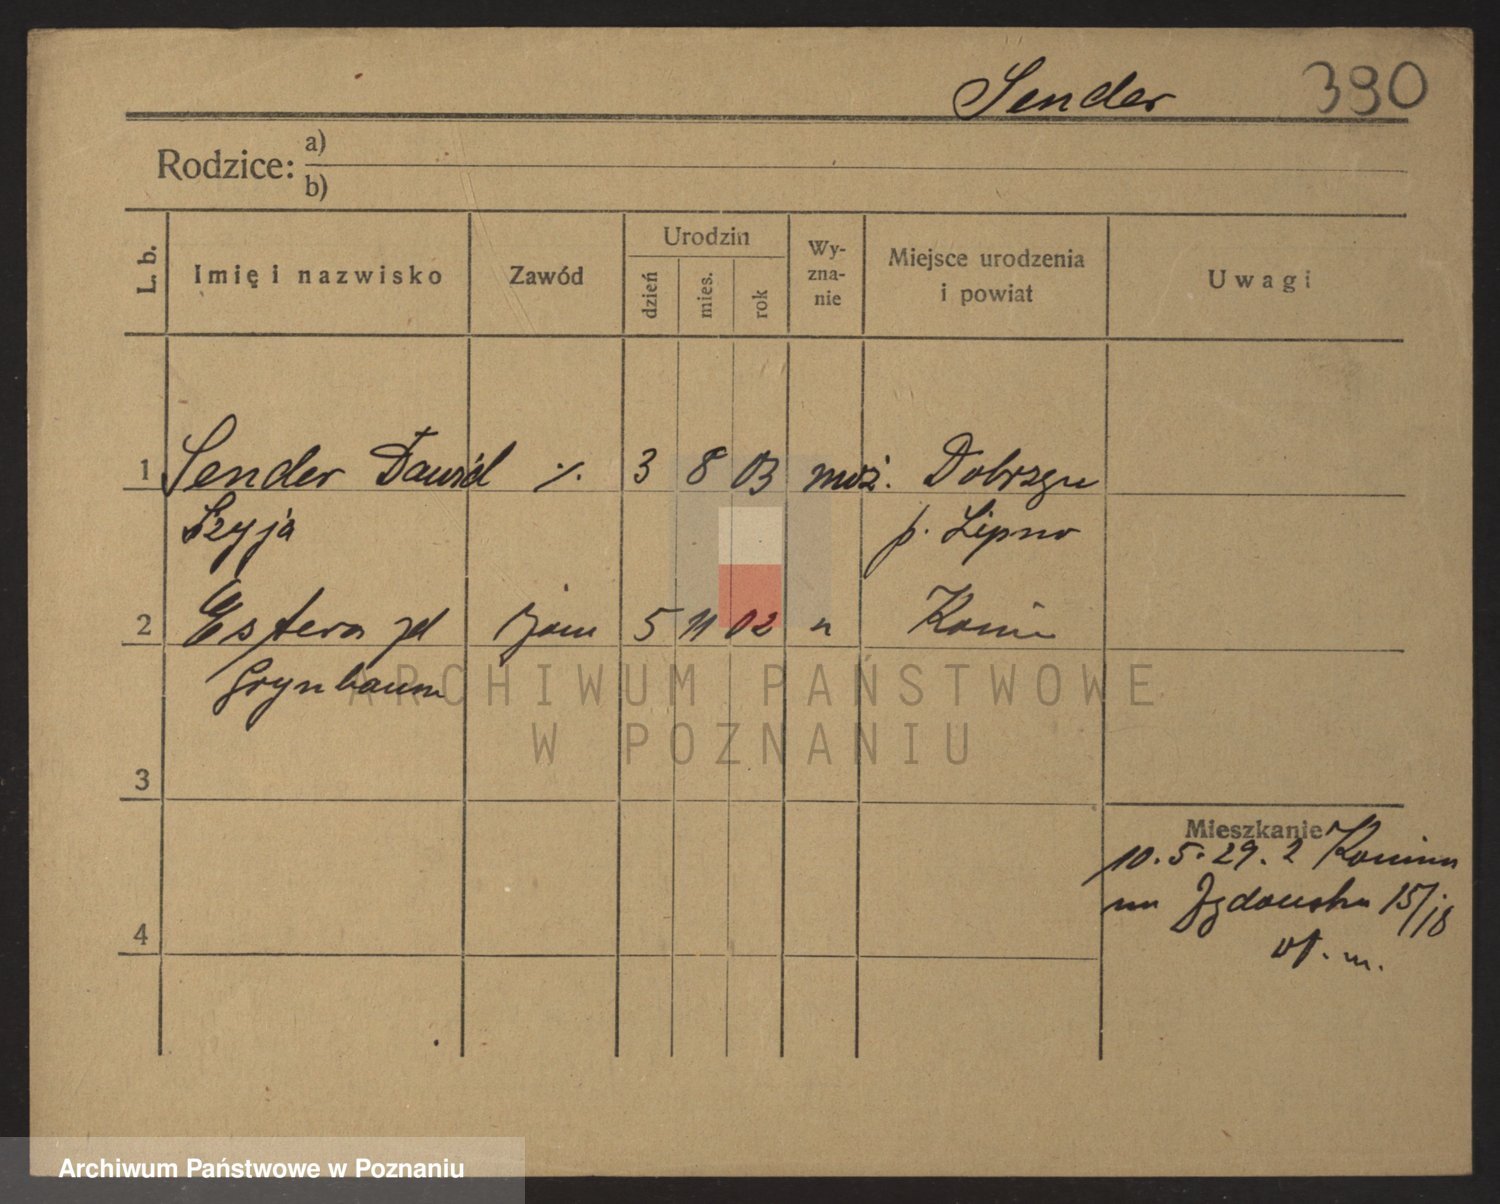 Sender 390
Rodzice: a)
b)
L. b. Imię i nazwisko Zawód Urodzin dzień mies. rok Wy-zna-nie Miejsce urodzenia i powiat Uwagi
1 Sender Dawid ./. 3 8 03 moż. Dobrzyn
Szyja p. Lipno
2 Estera zd żona 5 11 02 " Konin
Grynbaum
ARCHIWUM PAŃSTWOWE
W POZNANIU
3
Mieszkanie
10.5.29. z Konina
na 15/18
4
Archiwum Państwowe w Poznaniu